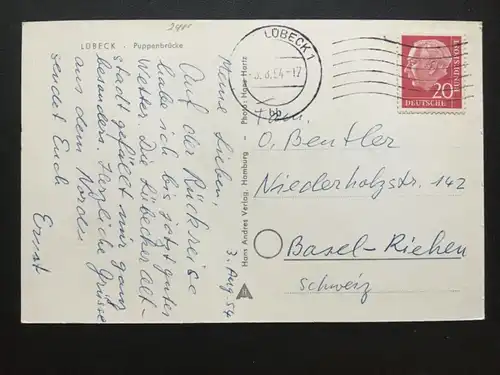 LÜBECK · Puppenbrücke
3. Aug. 54
Meine Lieben,
Auf der Rückreise
habe ich bis jetzt gutes
Wetter. Die Lübecker Alt-
stadt gefällt mir ganz
besonders. Herzliche Grüsse
aus dem Norden
sendet Euch
Ernst
Hans Andres Verlag, Hamburg — Photo: Hans Hartz
LÜBECK 1
.8.54-17
bb
DEUTSCHE
BUNDESPOST
20
O. Beutler
Niederholzstr. 142
Basel-Riehen
Schweiz